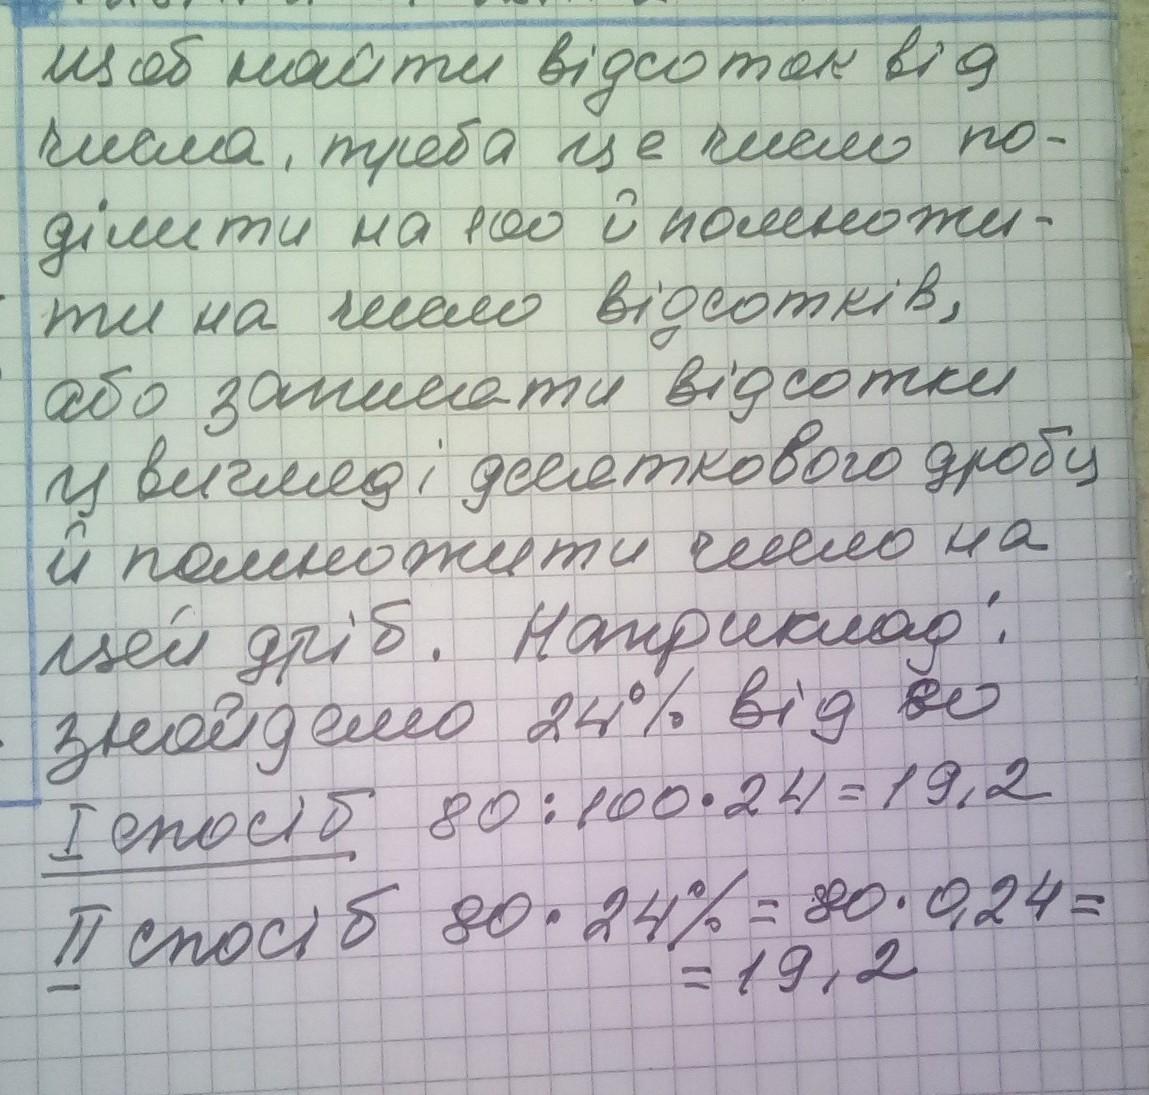 щоб найти відсоток від
числа, треба це число по-
ділити на 100 й помножи-
ти на число відсотків,
або записати відсотки
у вигляді десяткового дробу
й помножити число на
цей дріб. Наприклад:
знайдемо 24% від 80
I спосіб 80:100•24=19,2
II спосіб 80•24%=80•0,24=
=19,2